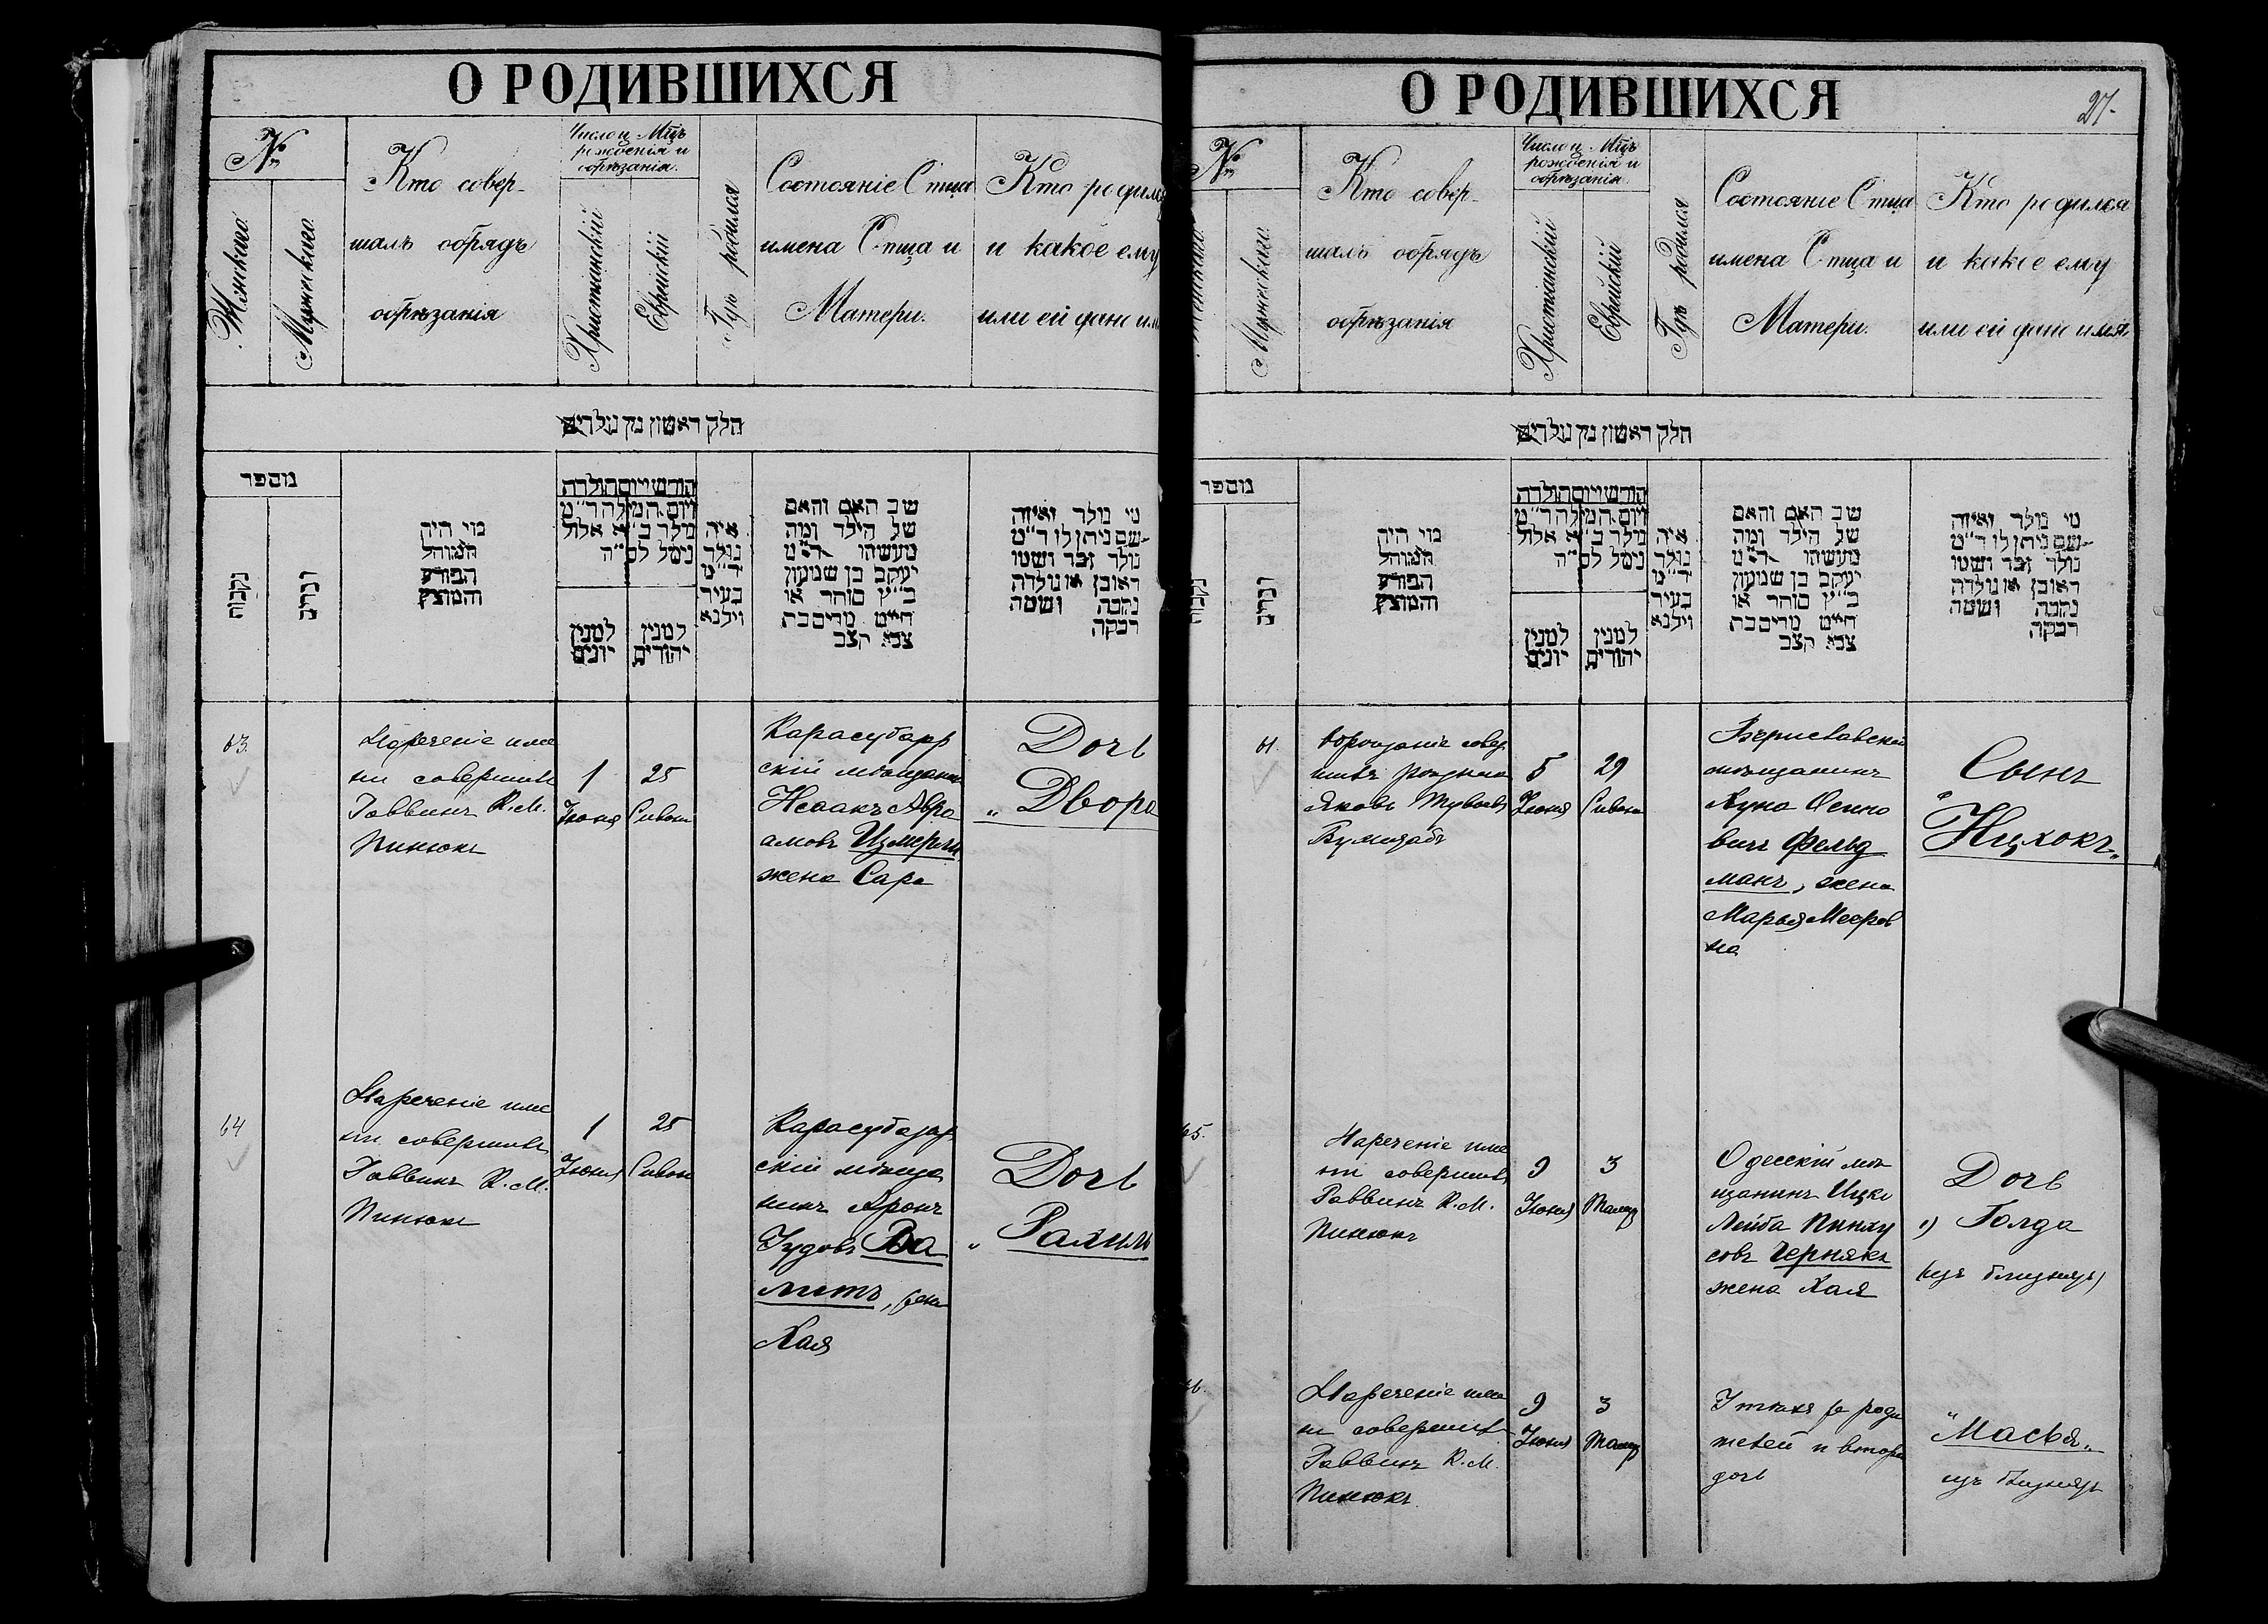 О РОДИВШИХСЯ
№
Женскаго.
Мужескаго.
Кто совер-
шалъ обрядъ
обрѣзанія
Число и Мцъ
рожденія и
обрѣзанія.
Христіанскій
Еврейскій
Гдѣ родился
Состояніе Отца
имена Отца и
Матери.
Кто родился
и какое ему
или ей дано им
חלק ראשון מן נולדים
מספר
נקבות
זכרים
מי היה
המוהל
הפורע
והמוצץ
חודש ויום הולדה
ויום המילה ד״מ
נולד ב״א אלול
נימל לס״ה
למנין
יונים
למנין
יהודים
איה
נולד
ד״מ
בעיר
וילנא
שב האם והאם
של הילד ומה
מעשהו ד״מ
יעקב בן שמעון
כ״ץ סוחר או
חייט מרים בת
צבי קצב
מי נולד ואיזה
שם ניתן לו ד״מ
נולד זכר ושמו
ראובן או נולדה
נקבה ושמה
רבקה
63.
Нареченіе име
ни совершилъ
Раввинъ К. М.
Пинюкъ
1
Іюня
25
Сивонъ
Карасубазар
скій мѣщанинъ
Исаакъ Авра
амовъ Измерли
жена Сара
Дочь
„Двора
64
Нареченіе име
ни совершилъ
Раввинъ К. М.
Пинюкъ
1
Іюня
25
Сивонъ
Карасубазар
скій мѣща
нинъ Аронъ
Іудовъ Ва
литъ, жена
Хая
Дочь
„Рахиль
О РОДИВШИХСЯ
27.
№
Женскаго.
Мужескаго.
Кто совер-
шалъ обрядъ
обрѣзанія
Число и Мцъ
рожденія и
обрѣзанія.
Христіанскій
Еврейскій
Гдѣ родился
Состояніе Отца
имена Отца и
Матери.
Кто родился
и какое ему
или ей дано имя
חלק ראשון מן נולדים
מספר
נקבות
זכרים
מי היה
המוהל
הפורע
והמוצץ
חודש ויום הולדה
ויום המילה ד״מ
נולד ב״א אלול
נימל לס״ה
למנין
יונים
למנין
יהודים
איה
נולד
ד״מ
בעיר
וילנא
שב האם והאם
של הילד ומה
מעשהו ד״מ
יעקב בן שמעון
כ״ץ סוחר או
חייט מרים בת
צבי קצב
מי נולד ואיזה
שם ניתן לו ד״מ
נולד זכר ושמו
ראובן או נולדה
נקבה ושמה
רבקה
61.
совер
шилъ
Яковъ
5
Іюня
29
Сивонъ
Бериславскій
мѣщанинъ
Осипо
вичъ Фельд
манъ, жена
Марья Мееров
на
Сынъ
„Ицхокъ„
65.
Нареченіе име
ни совершилъ
Раввинъ К. М.
Пинюкъ
9
Іюня
3
Тамуз
Одесскій мѣ
щанинъ Ицко
Лейба Пинху
совъ Чернякъ
жена Хая
Дочь
1) Голда
(изъ близнецъ)
66.
Нареченіе име
ни совершилъ
Раввинъ К. М.
Пинюкъ.
9
Іюня
3
Тамуз
У тѣхъ же роди
телей и втора
дочь
„Масья„
изъ близнецъ